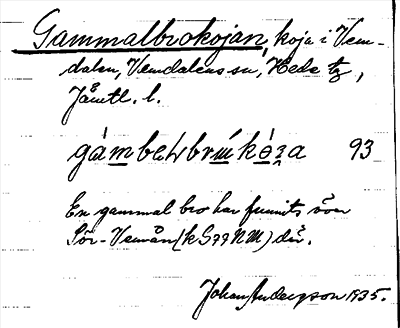 Gammalbrokojan, koja i Vem-
dalen, Vemdalens sn, Hede tg,
Jämtl. l.
93
En gammal bro har funnits över
Sör-Vemån (k S99NM) där.
Johan Anderson 1935.